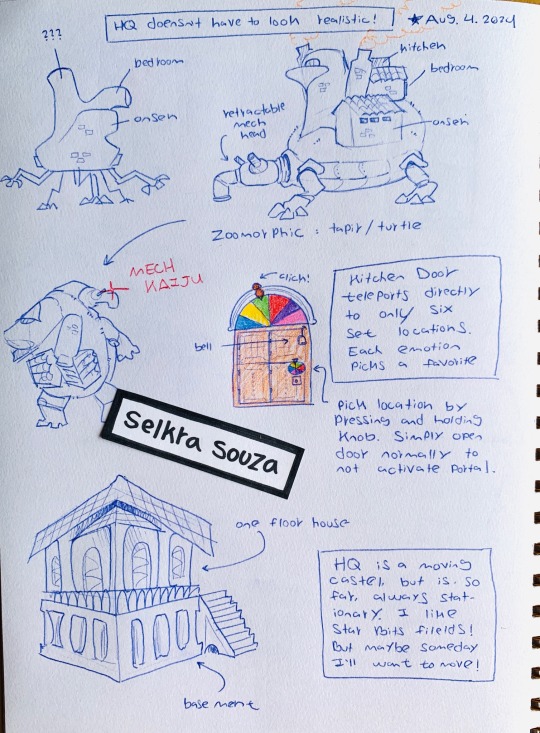 HQ doesn't have to look realistic!
★Aug. 4. 2024
???
bedroom
onsen
kitchen
bedroom
onsen
retractable
mech
head
Zoomorphic: tapir/turtle
MECH
KAIJU
click!
bell
Kitchen Door
teleports directly
to only six
set locations.
Each emotion
picks a favorite
Pick location by
pressing and holding
knob. Simply open
door normally to
not activate portal.
Selkra Souza
one floor house
HQ is a moving
castel, but is. so
far, always stat-
ionary. I like
Star Bits fileids!
But maybe someday
I'll want to move!
basement